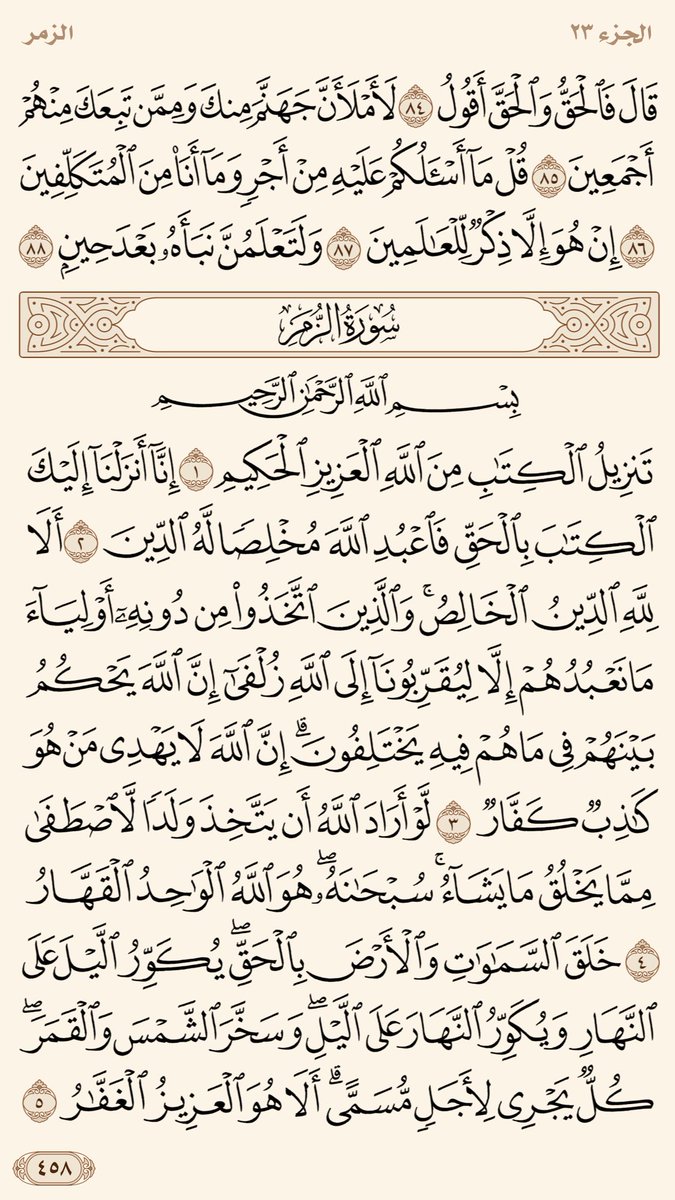 الجزء ٢٣
الزمر
قَالَ فَٱلْحَقُّ وَٱلْحَقَّ أَقُولُ ٨٤ لَأَمْلَأَنَّ جَهَنَّمَ مِنكَ وَمِمَّن تَبِعَكَ مِنْهُمْ
أَجْمَعِينَ ٨٥ قُلْ مَآ أَسْـَٔلُكُمْ عَلَيْهِ مِنْ أَجْرٍ وَمَآ أَنَا۠ مِنَ ٱلْمُتَكَلِّفِينَ
٨٦ إِنْ هُوَ إِلَّا ذِكْرٌ لِّلْعَـٰلَمِينَ ٨٧ وَلَتَعْلَمُنَّ نَبَأَهُۥ بَعْدَ حِينٍۭ ٨٨
سُورَةُ الزُّمَرِ
بِسْمِ ٱللَّهِ ٱلرَّحْمَـٰنِ ٱلرَّحِيمِ
تَنزِيلُ ٱلْكِتَـٰبِ مِنَ ٱللَّهِ ٱلْعَزِيزِ ٱلْحَكِيمِ ١ إِنَّآ أَنزَلْنَآ إِلَيْكَ
ٱلْكِتَـٰبَ بِٱلْحَقِّ فَٱعْبُدِ ٱللَّهَ مُخْلِصًا لَّهُ ٱلدِّينَ ٢ أَلَا
لِلَّهِ ٱلدِّينُ ٱلْخَالِصُ ۚ وَٱلَّذِينَ ٱتَّخَذُوا۟ مِن دُونِهِۦٓ أَوْلِيَآءَ
مَا نَعْبُدُهُمْ إِلَّا لِيُقَرِّبُونَآ إِلَى ٱللَّهِ زُلْفَىٰٓ إِنَّ ٱللَّهَ يَحْكُمُ
بَيْنَهُمْ فِى مَا هُمْ فِيهِ يَخْتَلِفُونَ ۗ إِنَّ ٱللَّهَ لَا يَهْدِى مَنْ هُوَ
كَـٰذِبٌ كَفَّارٌ ٣ لَّوْ أَرَادَ ٱللَّهُ أَن يَتَّخِذَ وَلَدًا لَّٱصْطَفَىٰ
مِمَّا يَخْلُقُ مَا يَشَآءُ ۚ سُبْحَـٰنَهُۥ ۖ هُوَ ٱللَّهُ ٱلْوَٰحِدُ ٱلْقَهَّارُ
٤ خَلَقَ ٱلسَّمَـٰوَٰتِ وَٱلْأَرْضَ بِٱلْحَقِّ ۖ يُكَوِّرُ ٱلَّيْلَ عَلَى
ٱلنَّهَارِ وَيُكَوِّرُ ٱلنَّهَارَ عَلَى ٱلَّيْلِ ۖ وَسَخَّرَ ٱلشَّمْسَ وَٱلْقَمَرَ ۖ
كُلٌّ يَجْرِى لِأَجَلٍ مُّسَمًّى ۗ أَلَا هُوَ ٱلْعَزِيزُ ٱلْغَفَّـٰرُ ٥
٤٥٨